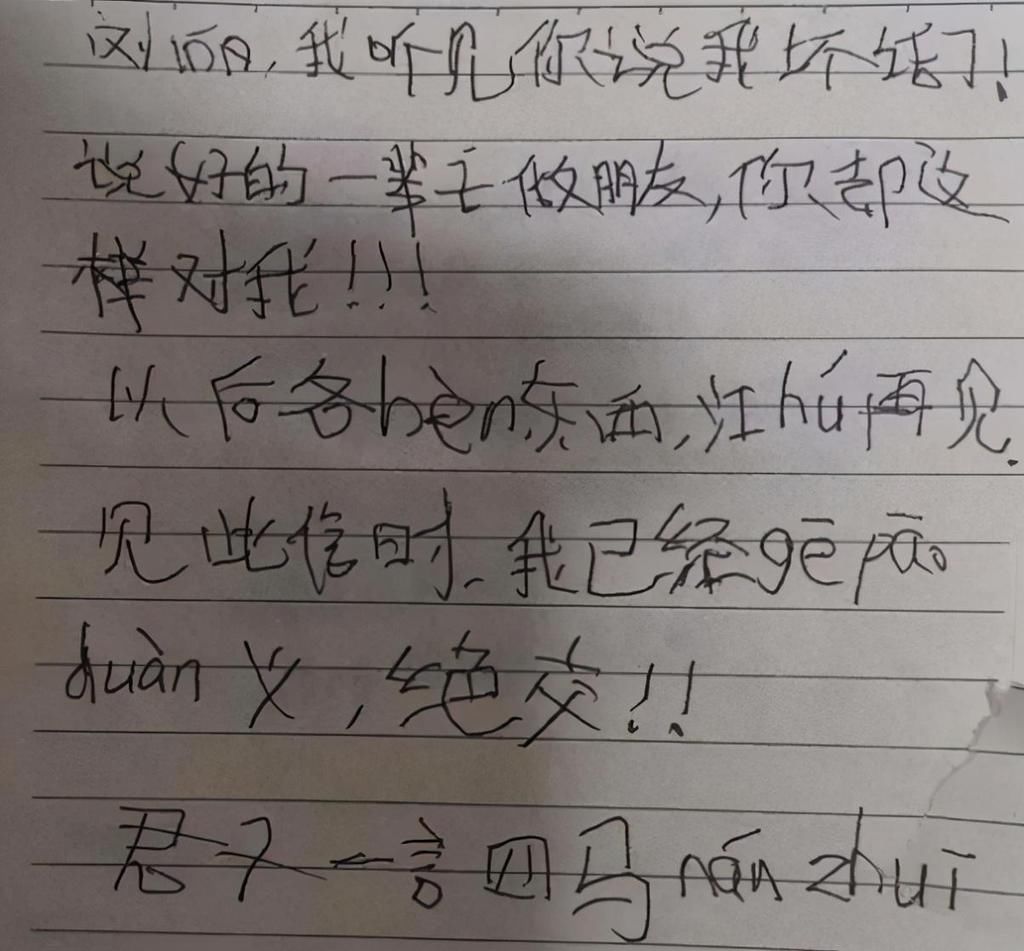 刘栢, 我听见你说我坏话了!
说好的一辈子做朋友,你却这
样对我!!!
以后各bèn东西,江hú再见.
见此信时.我已经gē páo
duàn义,绝交!!
君子一言四马nán zhuī